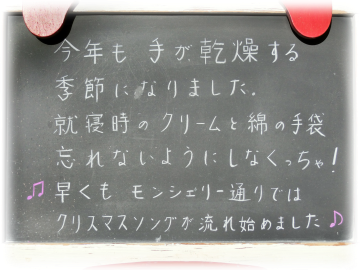 今年も 手が乾燥する
季節になりました.
就寝時のクリームと綿の手袋
忘れないようにしなくっちゃ!
♫ 早くも モンシェリー通りでは
クリスマスソングが流れ始めました♪